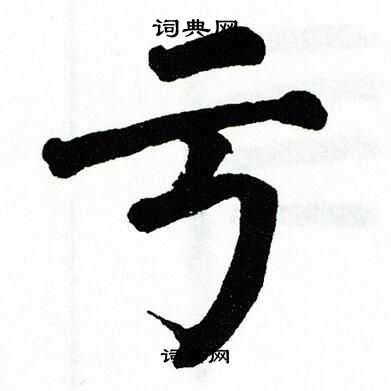 词典网
亏
词典网